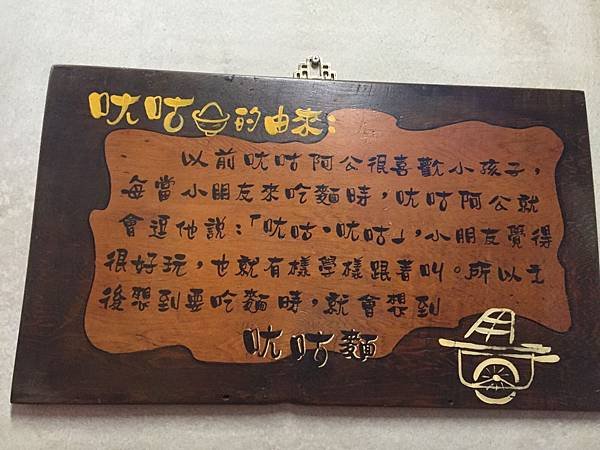 呔咕的由來：
以前呔咕阿公很喜歡小孩子，
每當小朋友來吃麵時，呔咕阿公就
會逗他說：「呔咕·呔咕」，小朋友覺得
很好玩，也就有樣學樣跟著叫。所以之
後想到要吃麵時，就會想到
呔咕麵